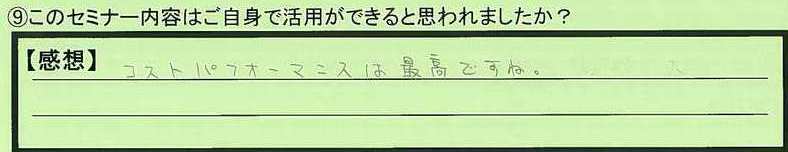 ⑨このセミナー内容はご自身で活用ができると思われましたか？
【感想】コストパフォーマンスは最高ですね。